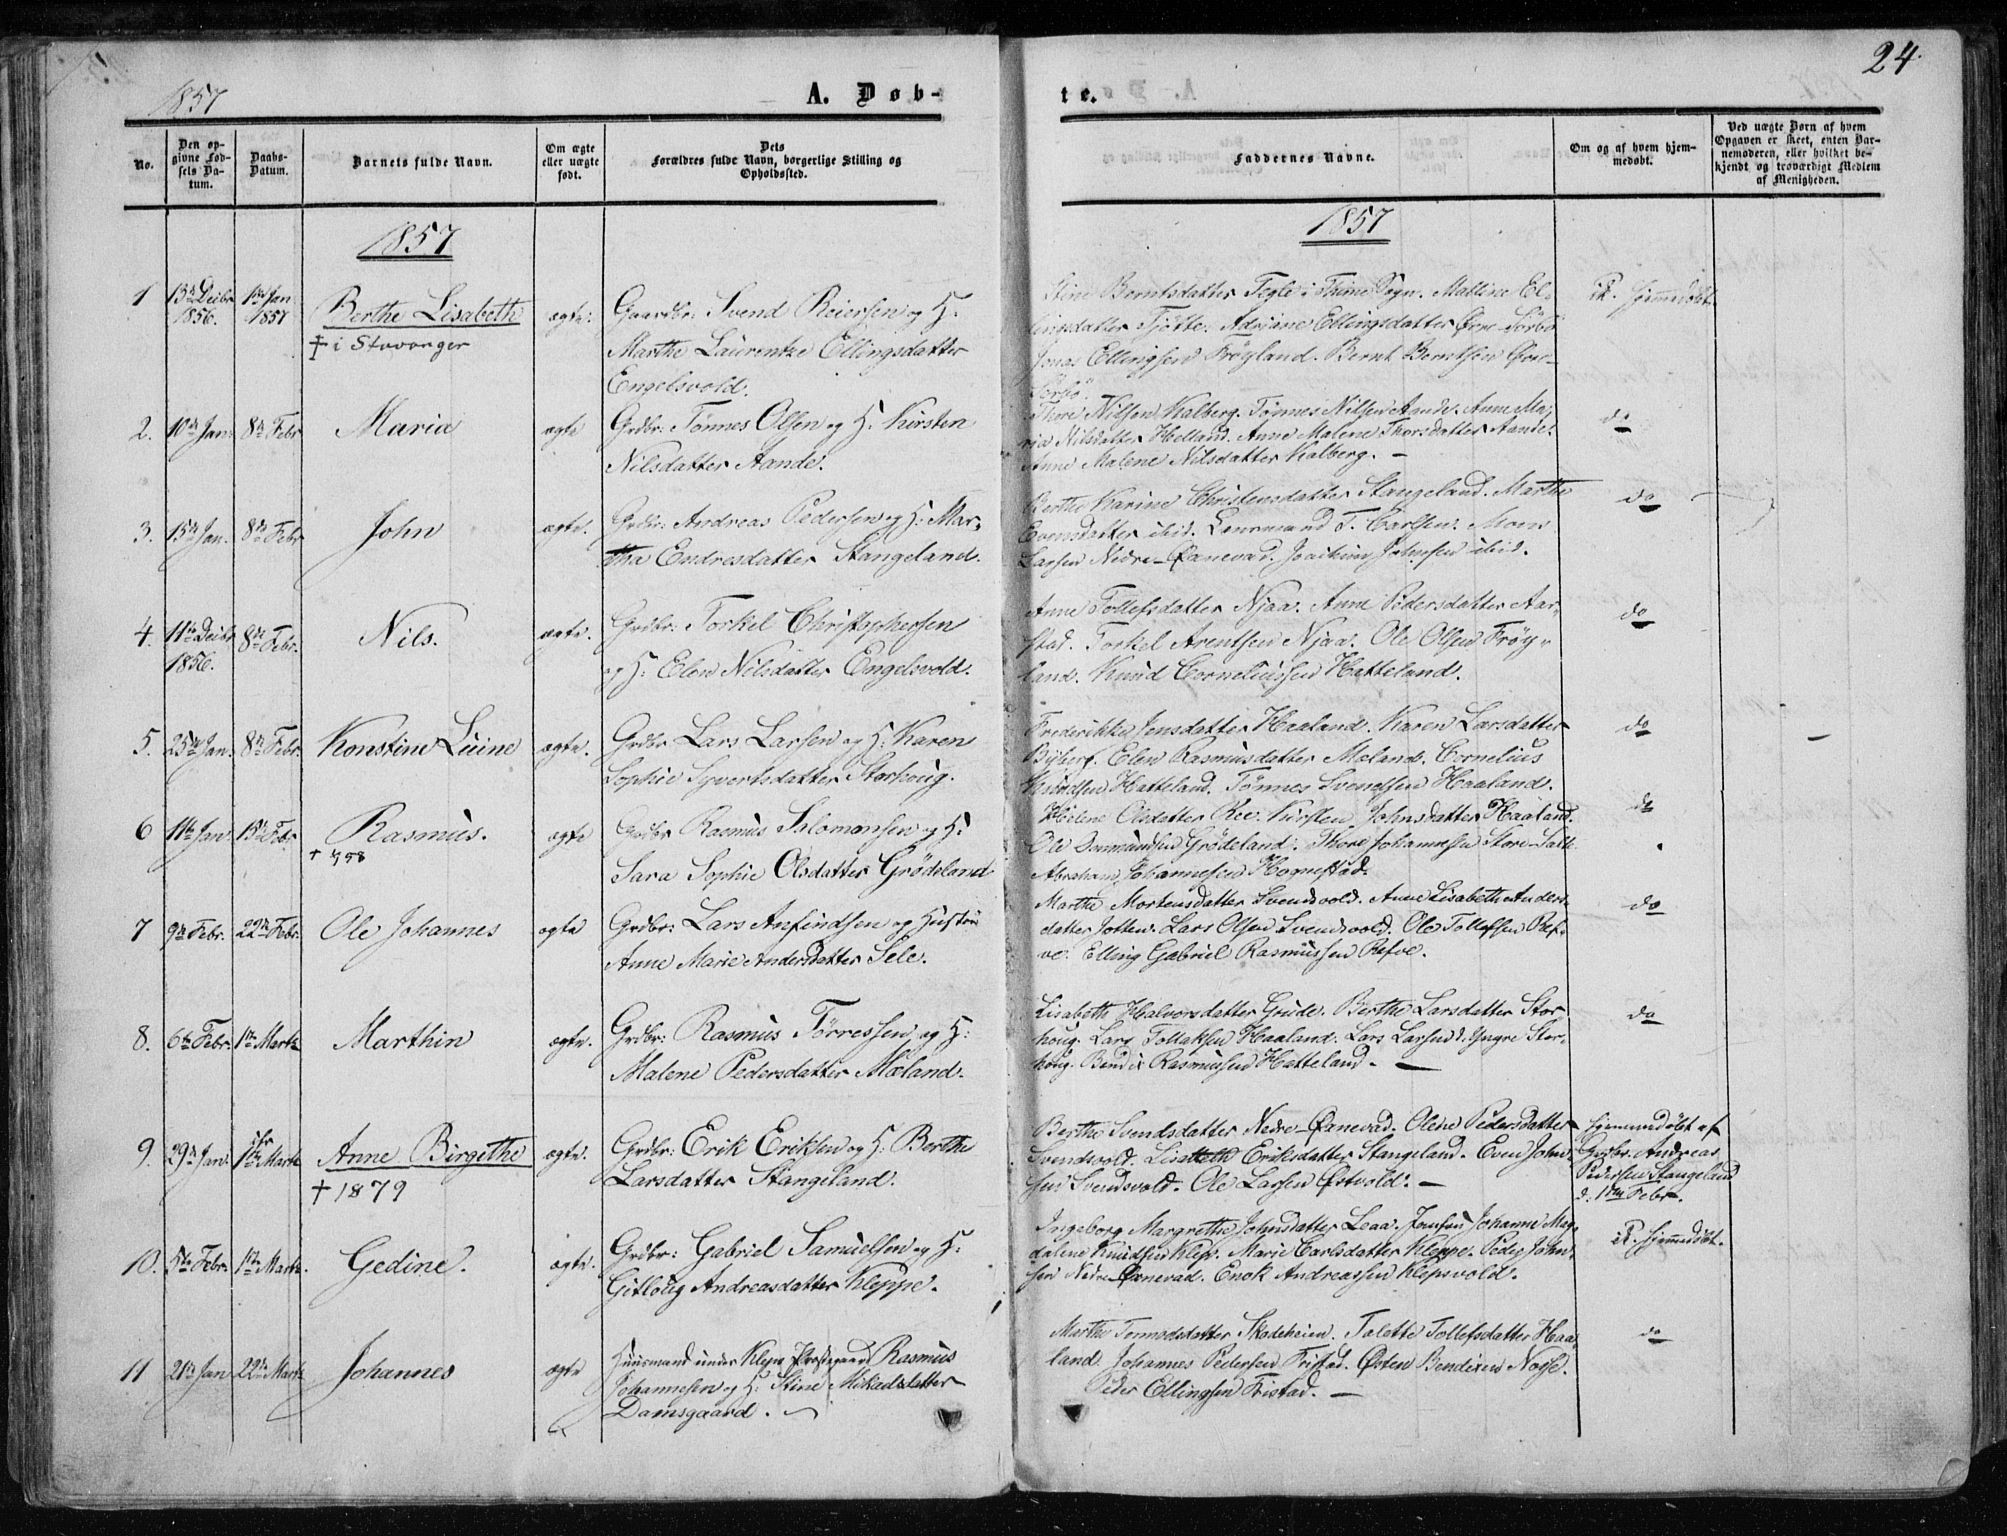 24.
1857
A. Døb-
te.
No.
Den op-
givne Fød-
sels Da-
tum.
Daabs-
Datum.
Barnets fulde Navn.
Om ægte
eller uægte
født.
Dets
Forældres fulde Navn, borgerlige Stilling og
Opholdssted.
Faddernes Navne.
Om og af hvem hjem-
medøbt.
Ved uægte Børn af hvem
Opgaven er skeet, enten Bar-
nemoderen, eller hvilket be-
kjendt og troværdigt Medlem
af Menigheden.
1857
1857
1
13de Decbr
1856.
1ste Jan
1857
Berthe Lisabeth
† i Stavanger
ægte.
Gaardbr: Svend Reiersen og H:
Marthe Laurentze Ellingsdatter
Engelsvold.
Stine Berntsdatter Tegle i Thime Sogn. Malline El-
lingsdatter Tjøtte. Adriane Ellingsdatter Øvre-Sørbø
Jonas Ellingsen Frøyland. Bernt Berntsen Øvre-
Sørbø.
ik. hjemmedøbt.
2.
10de Jan.
8de Febr
Maria
ægte
Grdbr: Tønnes Olsen og H. Kirsten
Nilsdatter Aande.
Thore Nilsen Kalberg. Tønnes Nilsen Aande. Anne Ma-
ria Nilsdatter Helland. Anne Malene Thorsdatter Aande.
Anne Malene Nilsdatter Kalberg. —
do
3.
15de Jan.
8de Febr
John
ægte.
Grdbr: Andreas Pedersen og H: Mar-
tha Endresdatter Stangeland.
Berthe Karine Christensdatter Stangeland. Marthe
Evensdatter ibid. Lensmand T. Carlsen. Mons
Larsen Nedre-Øxnevad. Joachim Johnsen ibid.
do
4.
11te Decbr
1856.
8de Febr.
Nils.
ægte.
Grdbr: Torkel Christophersen
og H: Elen Nilsdatter Engelsvold.
Anne Tollefsdatter Njaa. Anne Pedersdatter Aar-
stad. Torkel Arentsen Njaa. Ole Olsen Frøy-
land. Knud Corneliussen Hatteland.
do
5.
25de Jan.
8de Febr.
Konstine Luine
ægte.
Grdbr Lars Larsen og H: Karen
Sophie Syvertsdatter Storhoug.
Frederikke Jensdatter Haaland. Karen Larsdatter
Byberg. Elen Rasmusdatter Meland. Cornelius
Knudsen Hatteland. Tønnes Svendsen Haaland.
do
6
11te Jan.
15de Febr.
Rasmus.
ægte
Grdbr Rasmus Salomonsen og H:
Sara Sophie Olsdatter Grødeland
Helene Olsdatter Ree. Kirsten Johnsdatter Haaland.
Ole Grødeland. Thore Johannesen Store-Salte
Abraham Johannesen Hognestad.
do
7
9de Febr.
22de Febr.
Ole Johannes
ægte
Grdbr: Lars Anfindsen og Hustru
Anne Marie Andersdatter Sele.
Marthe Mortensdatter Svendsvold. Anne Lisabeth Anders-
datter Jotten. Lars Olsen Svendsvold. Ole Tollefsen Ref-
ve. Elling Gabriel Rasmussen Refve.
do
8.
6te Febr.
1ste Marts
Marthin
ægte.
Grdbr: Rasmus Tørressen og H:
Malene Pedersdatter Mæland.
Lisabeth Halvorsdatter Grude. Berthe Larsdatter Stor-
houg. Lars Tollaksen Haaland. Lars Larsen d. Yngre Stor-
houg. Bendix Rasmussen Hatteland. —
do
9.
29de Jan.
1ste Marts
Anne Birgithe
† 1879
ægte.
Grdbr: Erik Eriksen og H. Berthe
Larsdatter Stangeland.
Berthe Svendsdatter Nedre-Øxnevad. Olene Pedersdatter
Svendsvold. Lisabeth Eriksdatter Stangeland. Even John-
sen Svendsvold. Ole Larsen Østvold. —
hjemmedøbt af
Grdbr. Andreas
Pedersen Stangeland
d. 1ste Febr.
10.
5te Febr.
1ste Marts.
Gedine.
ægte.
Grdbr: Gabriel Samuelsen og H:
Gitloug Andreasdatter Kleppe.
Ingeborg Margrethe Johnsdatter Leaa. Johanne Mag-
dalene Knudsen Klep. Marie Carlsdatter Kleppe. Peder John-
sen Nedre-Øxnevad. Enok Andreassen Klepsvold.
ik. hjemmedøbt.
11
21de Jan
22de Marts
Johannes
ægte
Huusmand under Klep Præstegaard Rasmus
Johannesen og H: Stine Mikalsdatter
Damsgaard.
Marthe Tormodsdatter Skadeheien. Talette Tollefsdatter Haa-
land. Johannes Pedersen Fristad. Østen Bendixen Nose.
Peder Ellingsen Fristad. —
do